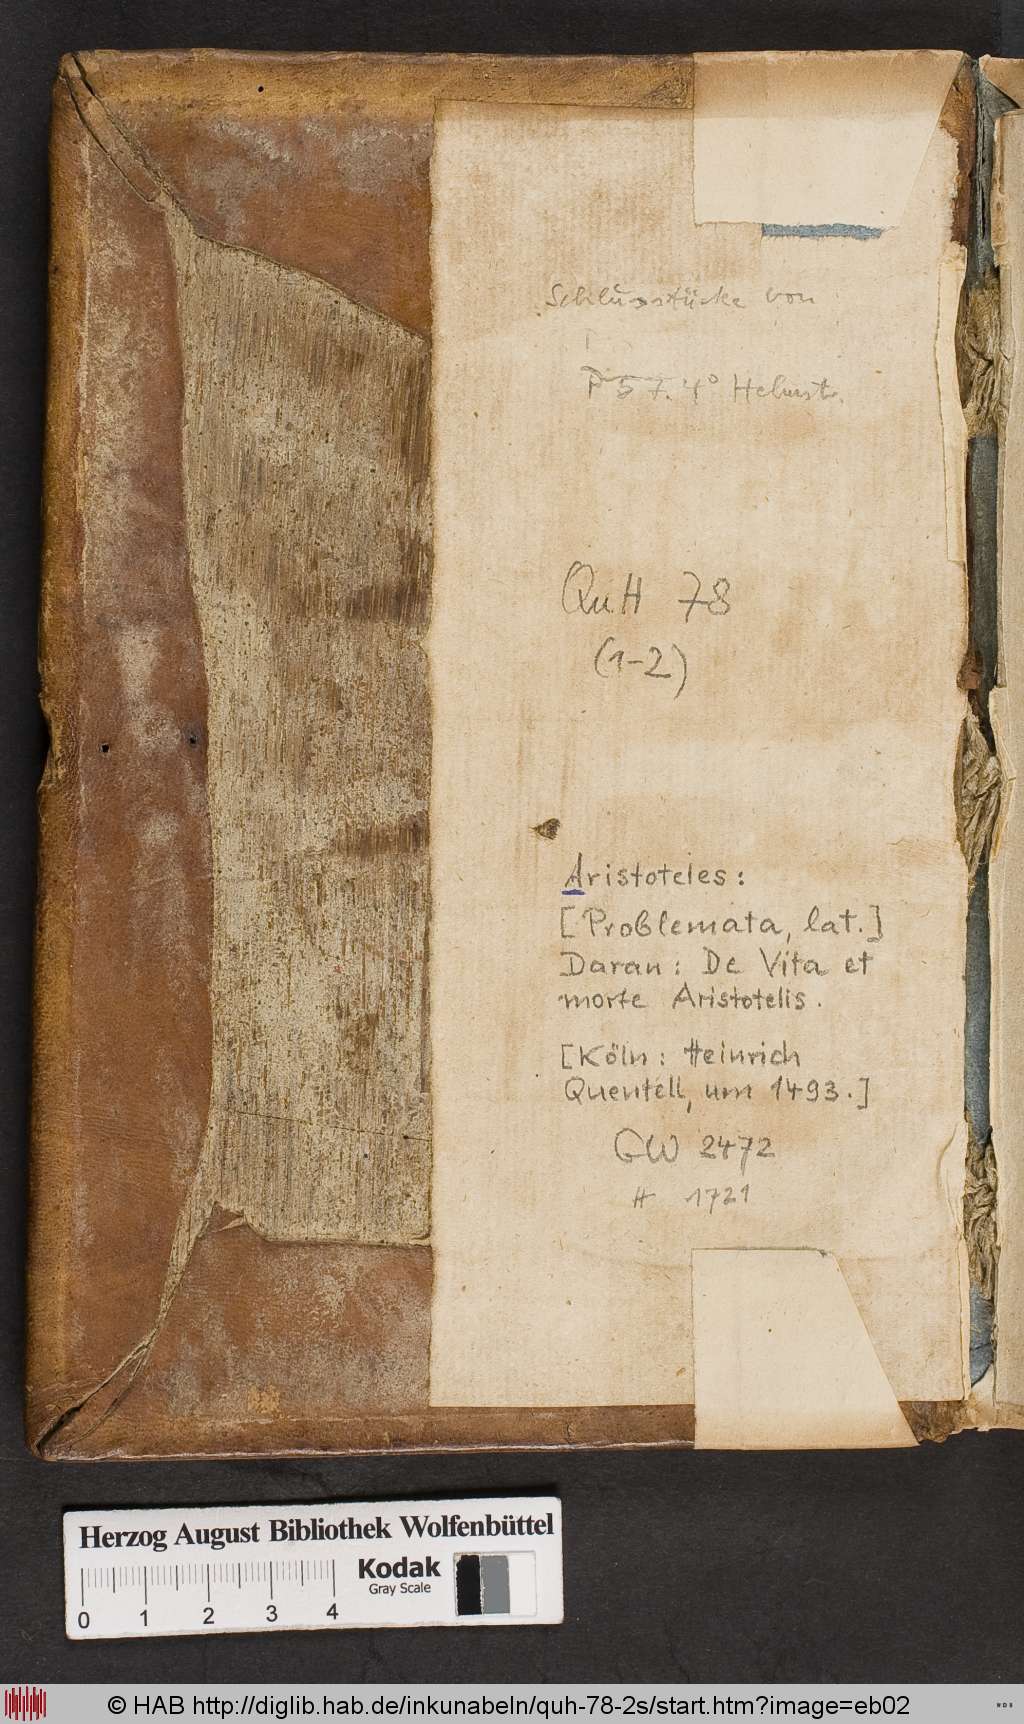 Schlussstücke von
P 57. 4° Helmst.
QuH 78
(1-2)
Aristoteles:
[Problemata, lat.]
Daran: De Vita et
morte Aristotelis.
[Köln: Heinrich
Quentell, um 1493.]
GW 2472
H 1721
Herzog August Bibliothek Wolfenbüttel
Kodak
Gray Scale
0 1 2 3 4
© HAB http://diglib.hab.de/inkunabeln/quh-78-2s/start.htm?image=eb02